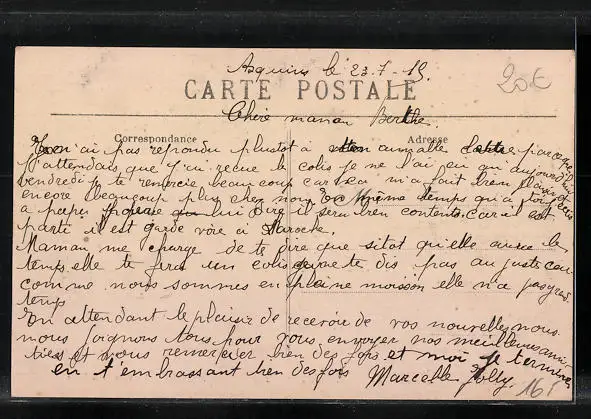 le 23-7-19.
20€
CARTE POSTALE
Chère maman Berthe.
Correspondance
Adresse
n'ai pas répondu plustot à ton aimable lettre parceque
J'attendais que j'ai reçue le colis je ne l'ai eu qu'aujourd'hui
vendredi je te remercie beaucoup car ça m'a fait bien plaisir
encore beaucoup plus chez nous même temps qu'a
a papa lui dire il sera bien content, car il est
parti il est garde voie à
Maman me charge de te dire que sitot qu'elle aura le
temps elle te fera un colis te dis pas au juste
comme nous sommes en pleine moisson elle n'a pas grd.
temps
En attendant le plaisir de recevoir de vos nouvelles nous
nous joignons tous pour vous envoyer nos meilleures ami-
tiés et vous remercier bien des fois et moi je termine
en t'embrassant bien des fois Marcelle Jolly
16F